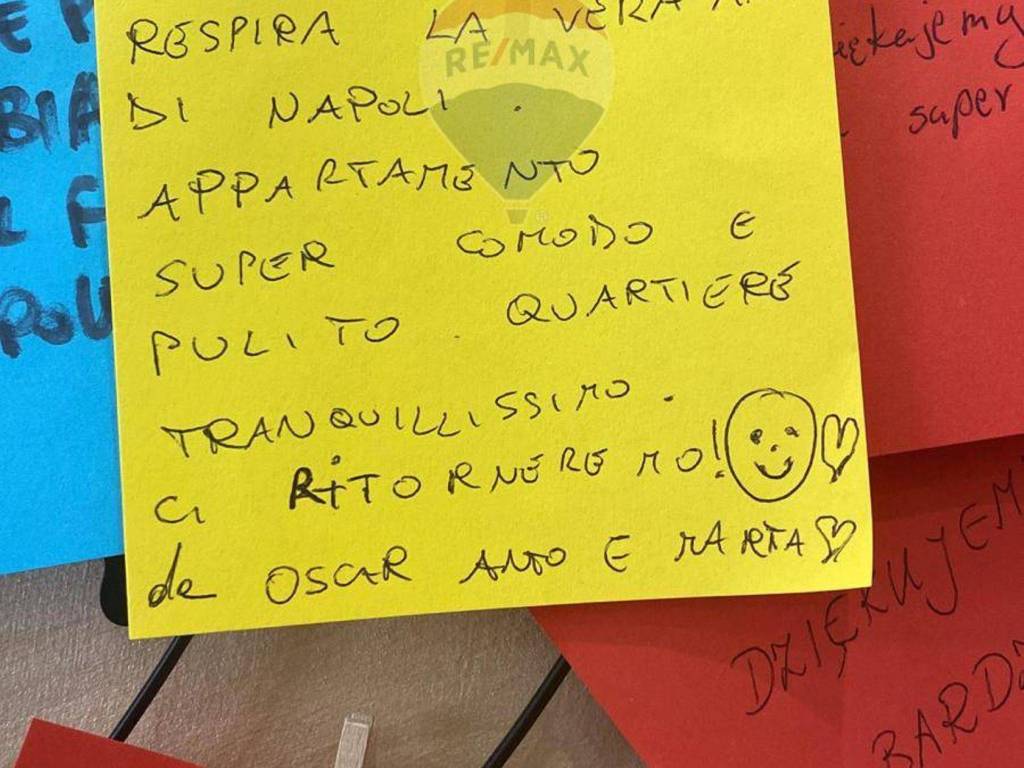 RESPIRA LA VERA
DI NAPOLI.
APPARTAMENTO
SUPER COMODO E
PULITO. QUARTIERE
TRANQUILLISSIMO.
CI RITORNEREMO!
da OSCAR ANTO E MARTA
RE/MAX
super
DZIĘKUJEM
BARDZ